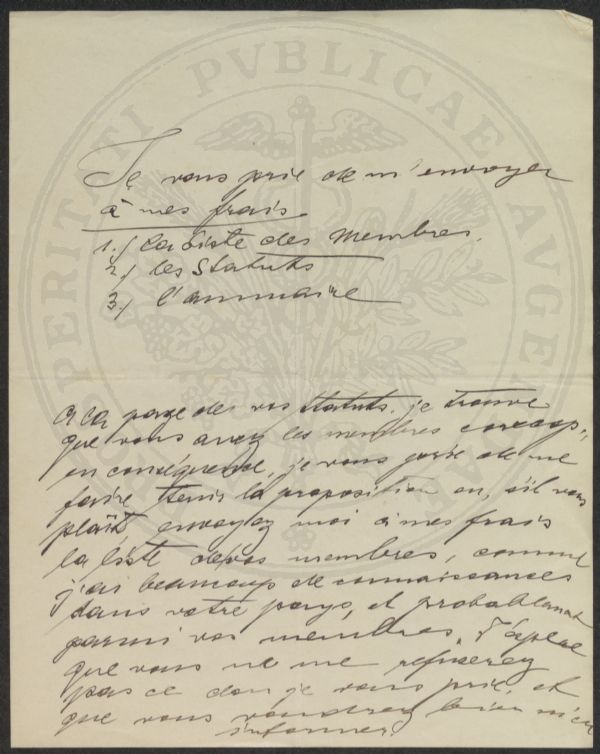 PROSPERITATI PVBLICAE AVGE
Je vous prie de m'envoyer
à mes frais
1./ la Liste des Membres.
2./ les Statuts
3./ l'annuaire
a la page de vos statuts. je trouve
que vous avez les membres corresp.,
en conséquence, je vous prie de me
faire tenir la proposition ou, s'il vous
plaît, envoyez moi à mes frais
la liste de vos membres, comme
j'ai beaucoup de connaissances
dans votre pays, et probablement
parmi vos membres. J'
que vous ne me refuserez
pas ce don je vous prie, et
que vous voudrez bien m'en
informer.